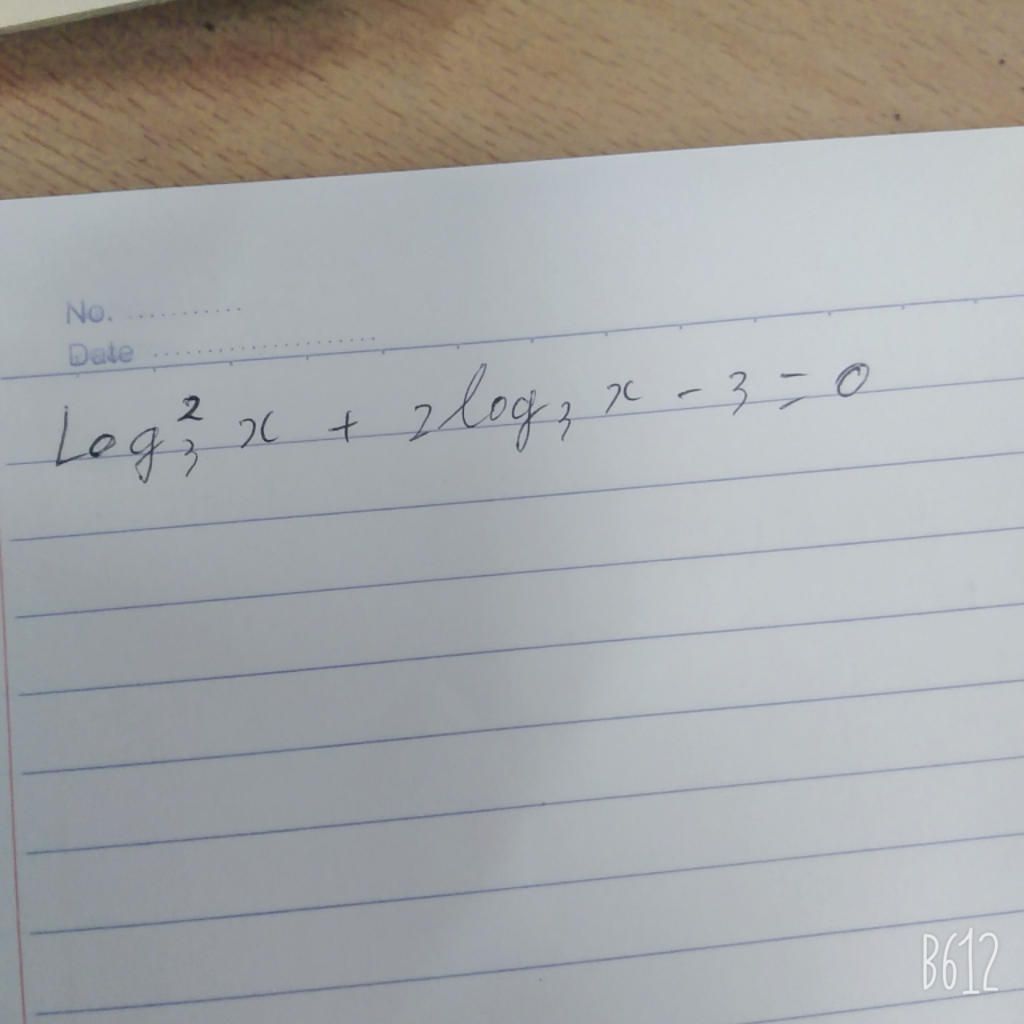 No. ...........
Date .....................
Log₃² x + 2log₃ x - 3 = 0
B612